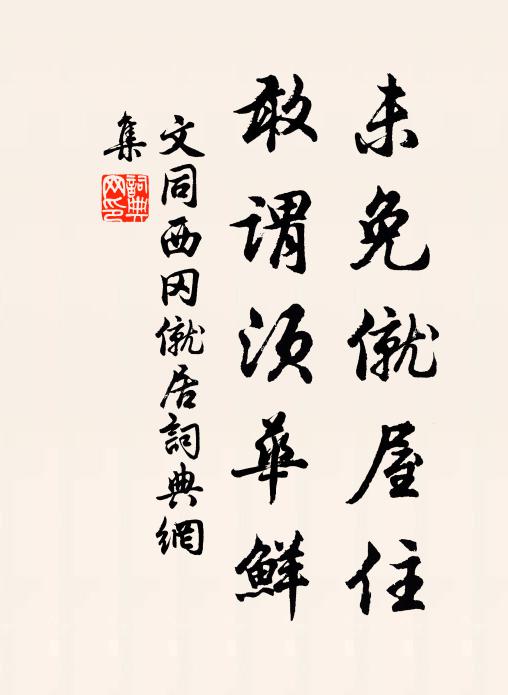 未免僦屋住
敢謂須華鮮
文同西冈僦居詞典網
集
詞典網印